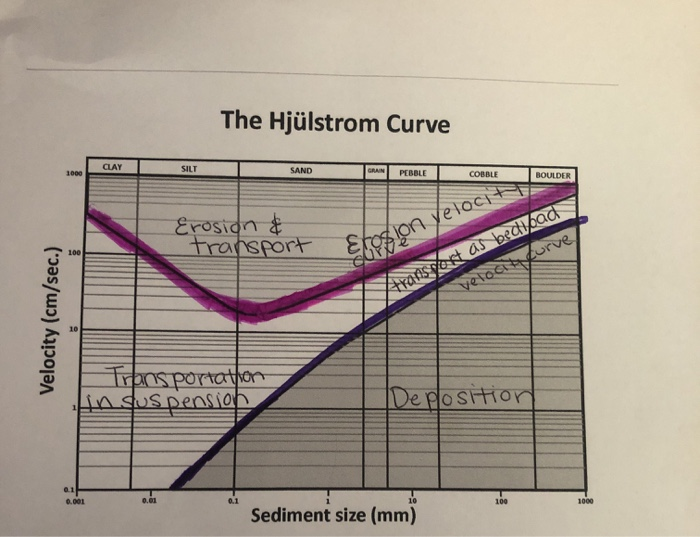 The Hjülstrom Curve
CLAY SILT SAND GRAIN PEBBLE COBBLE BOULDER
1000
100
10
1
0.1
Velocity (cm/sec.)
Erosion &
transport
Erosion velocity
curve
transport as bedload
velocity curve
Transportation
in suspension
Deposition
0.001 0.01 0.1 1 10 100 1000
Sediment size (mm)